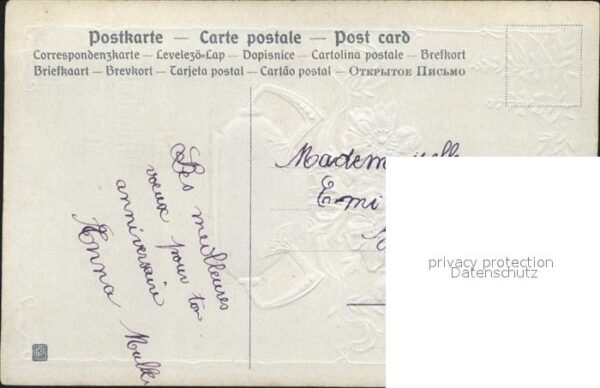 Postkarte — Carte postale — Post card
Correspondenzkarte — Levelező-Lap — Dopisnice — Cartolina postale — Brefkort
Briefkaart — Brevkort — Tarjeta postal — Cartão postal — Открытое Письмо
Les meilleures
voeux pour ton
anniversaire
Anna
Mademoiselle
Emi
privacy protection
Datenschutz